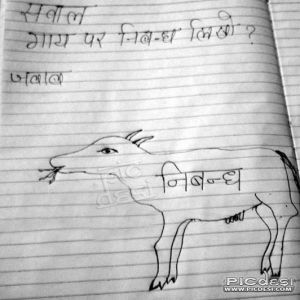 सवाल
गाय पर निबन्ध लिखो ?
जवाब
निबन्ध
PICDESI
WWW.PICDESI.COM